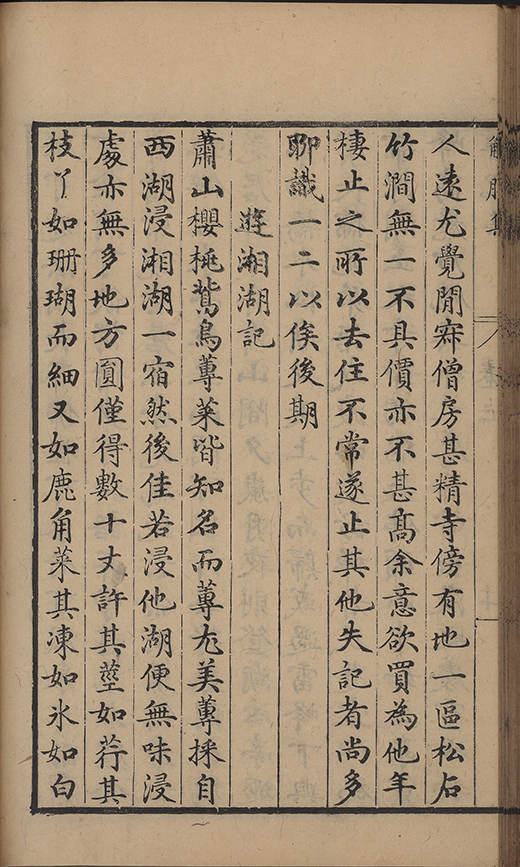 解脫集
人遠尤覺閒寂僧房甚精寺傍有地一區松石
竹澗無一不具價亦不甚高余意欲買為他年
棲止之所以去住不常遂止其他失記者尚多
聊識一二以俟後期
遊湘湖記
蕭山櫻桃鷙鳥蓴菜皆知名而蓴尤美蓴採自
西湖浸湘湖一宿然後佳若浸他湖便無味浸
處亦無多地方圓僅得數十丈許其莖如荇其
枝丫如珊瑚而細又如鹿角菜其凍如氷如白